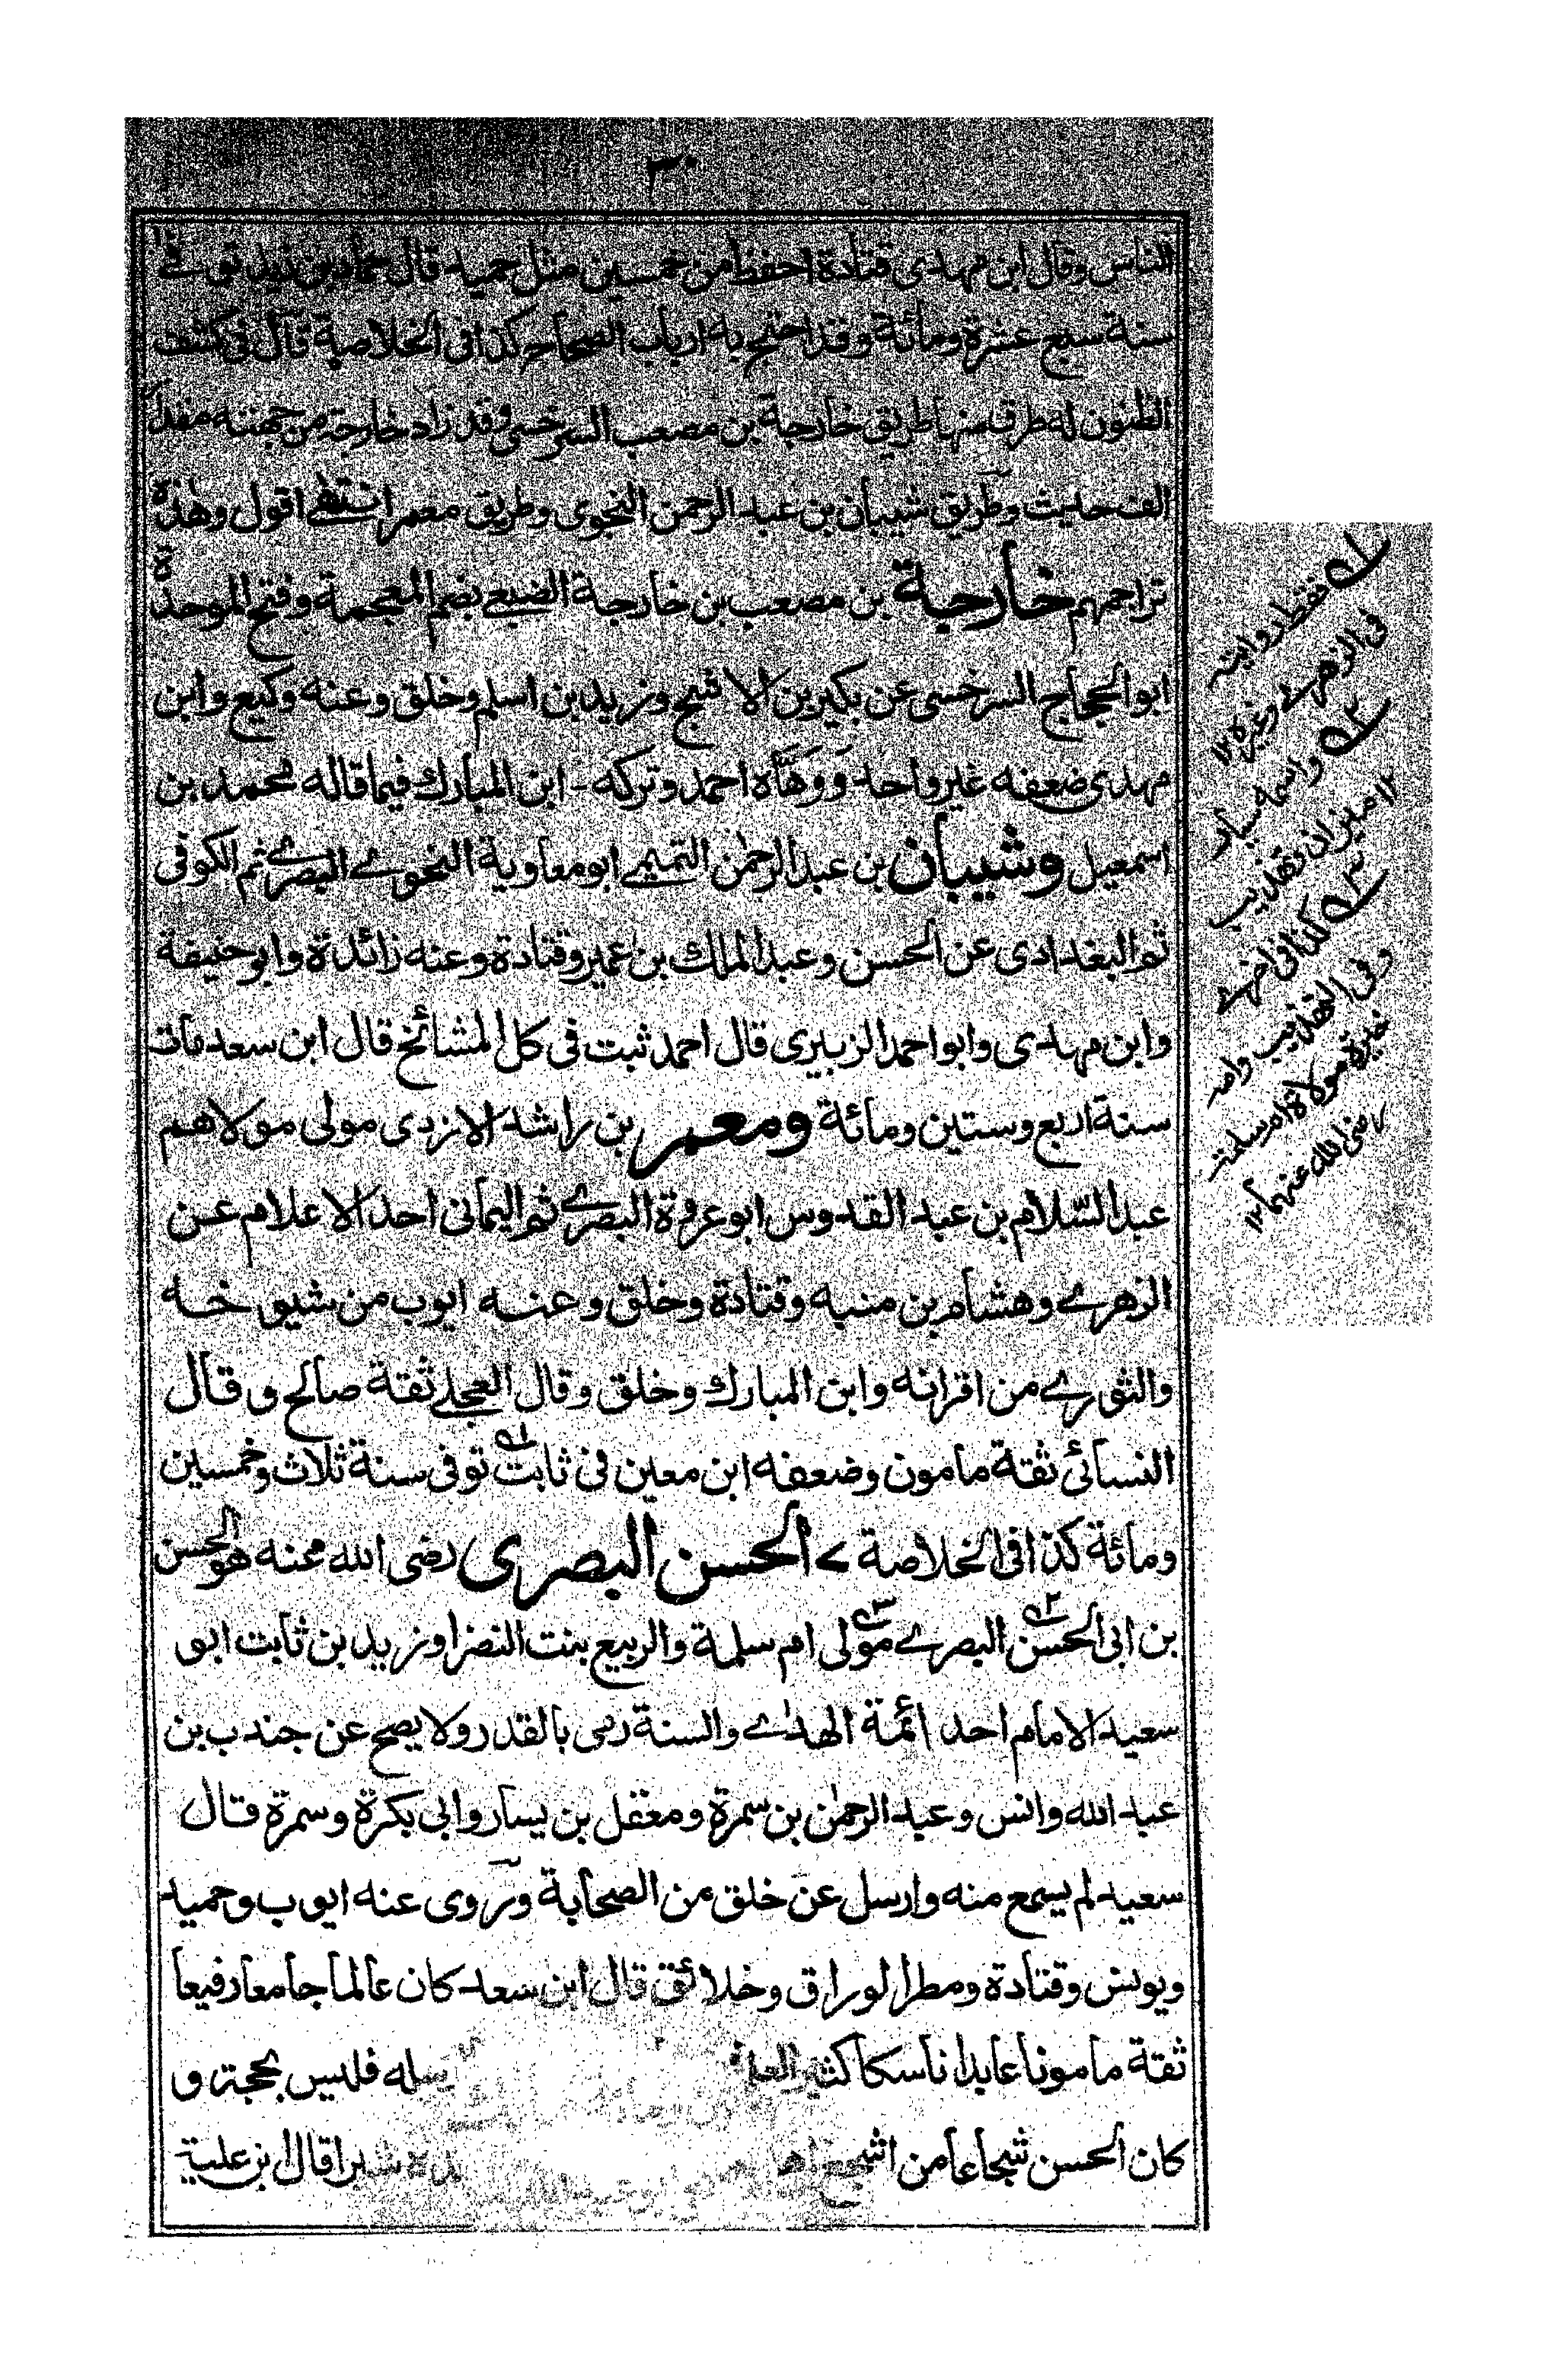 ٣٠
الناس وقال ابن مهدى قتادة احفظ من خمسين مثل حميد قال حماد بن زيد توفے
سنة سبع عشرة ومائة وقد احتج به ارباب الصحاح كذا فى الخلاصة قال فى كشف
الظنون له طرق منها طريق خارجة بن مصعب السرخسى وقد زاد خارجة من جهته مقدار
الف حديث وطريق شيبان بن عبد الرحمن النحوى وطريق معمر انتهى اقول وهذه
تراجمهم خارجة بن مصعب بن خارجة الضبعے بضم المعجمة وفتح الموحدة
ابو الحجاج السرخسى عن بكير بن الاشج وزيد بن اسلم وخلق وعنه وكيع وابن
مهدى ضعفه غير واحد ووهّاه احمد وتركه - ابن المبارك فيما قاله محمد بن
اسمعيل وشيبان بن عبد الرحمٰن التميمے ابو معاوية النحوے البصرے ثم الكوفى
ثم البغدادى عن الحسن وعبد الملك بن عمير وقتادة وعنه زائدة وابو حنيفة
وابن مهدى وابو احمد الزبيرى قال احمد ثبت فى كل المشائخ قال ابن سعد مات
سنة اربع وستين ومائة ومعمر بن راشد الازدى مولى مولاهم
عبد السّلام بن عبد القدوس ابو عروة البصرے ثم اليمانى احد الاعلام عن
الزهرے وهشام بن منبه وقتادة وخلق وعنه ايوب من شيوخه
والثورے من اقرانه وابن المبارك وخلق وقال العجلے ثقة صالح وقال
النسائى ثقة مامون وضعفه ابن معين فى ثابت توفى سنة ثلاث وخمسين
ومائة كذا فى الخلاصة ے الحسن البصرى رضى الله عنه هو الحسن
بن ابى الحسن البصرے مولى ام سلمة والربيع بنت النضر او زيد بن ثابت ابو
سعيد الامام احد ائمة الهدٰے والسنة رمى بالقدر ولا يصح عن جندب بن
عبد الله وانس وعبد الرحمٰن بن سمرة ومعقل بن يسار وابى بكرة وسمرة قال
سعيد لم يسمع منه وارسل عن خلق من الصحابة وروى عنه ايوب وحميد
ويونس وقتادة ومطر الوراق وخلائق قال ابن سعد كان عالما جامعا رفيعا
ثقة مامونا عابدا ناسكا كثير العلم فليس بحجة و
كان الحسن شجاعا من اشجع قال ابن علية
١ فقط روايته
فى الزهرے وغيره ١٢
٢ واسمه يسار
١٢ ميزان تقذيب
٣ كذا فى
وفى التقريب وامه
خيرة مولاة ام سلمة
رضى الله عنهما ١٢